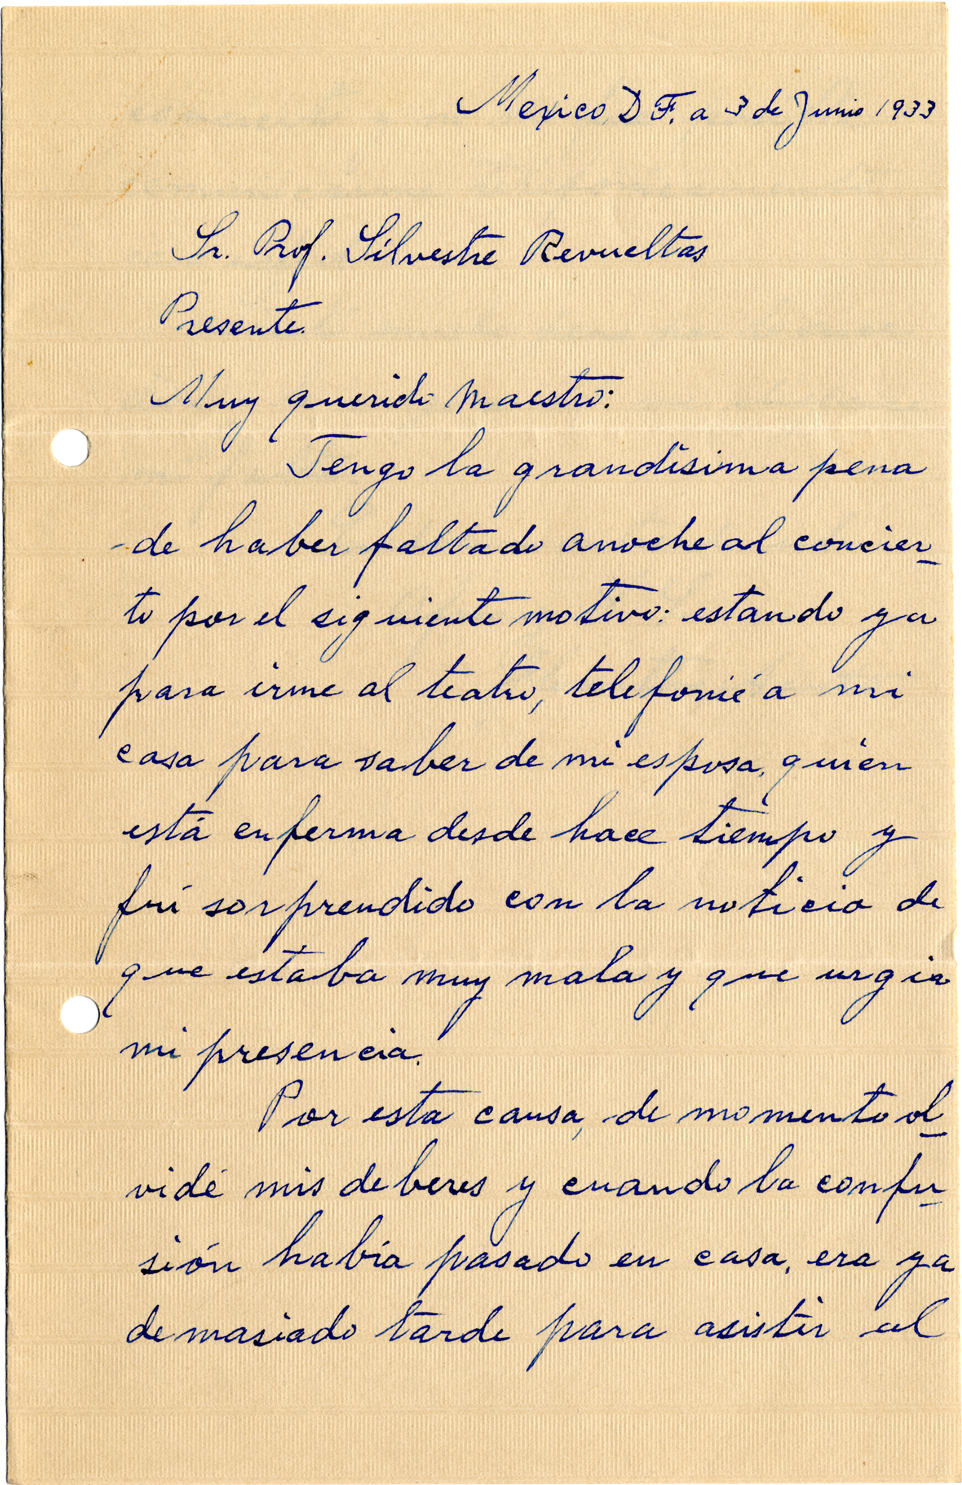 Mexico, D F. a 3 de Junio 1933
Sr. Prof. Silvestre Revueltas
Presente.
Muy querido Maestro:
Tengo la grandísima pena
de haber faltado anoche al concier-
to por el siguiente motivo: estando ya
para irme al teatro, telefonié a mi
casa para saber de mi esposa, quién
está enferma desde hace tiempo y
fuí sorprendido con la noticia de
que estaba muy mala y que urgia
mi presencia.
Por esta causa, de momento ol-
vidé mis deberes y cuando la confu-
sión había pasado en casa, era ya
demasiado tarde para asistir al